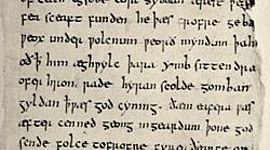 egsode eorl syððan ærest wear
fea sceaft funden he þæs frofre geba
weox under wolcnum weorð myndum þah
oð ꝥ him æghwylc þara ymb sittendra
ofer hron rade hyran scolde gomban
gyldan ꝥ wæs god cyning. ðæm eafera wæs
æfter cenned geong in geardum þone god
sende folce tofrofre fyren ðearfe on